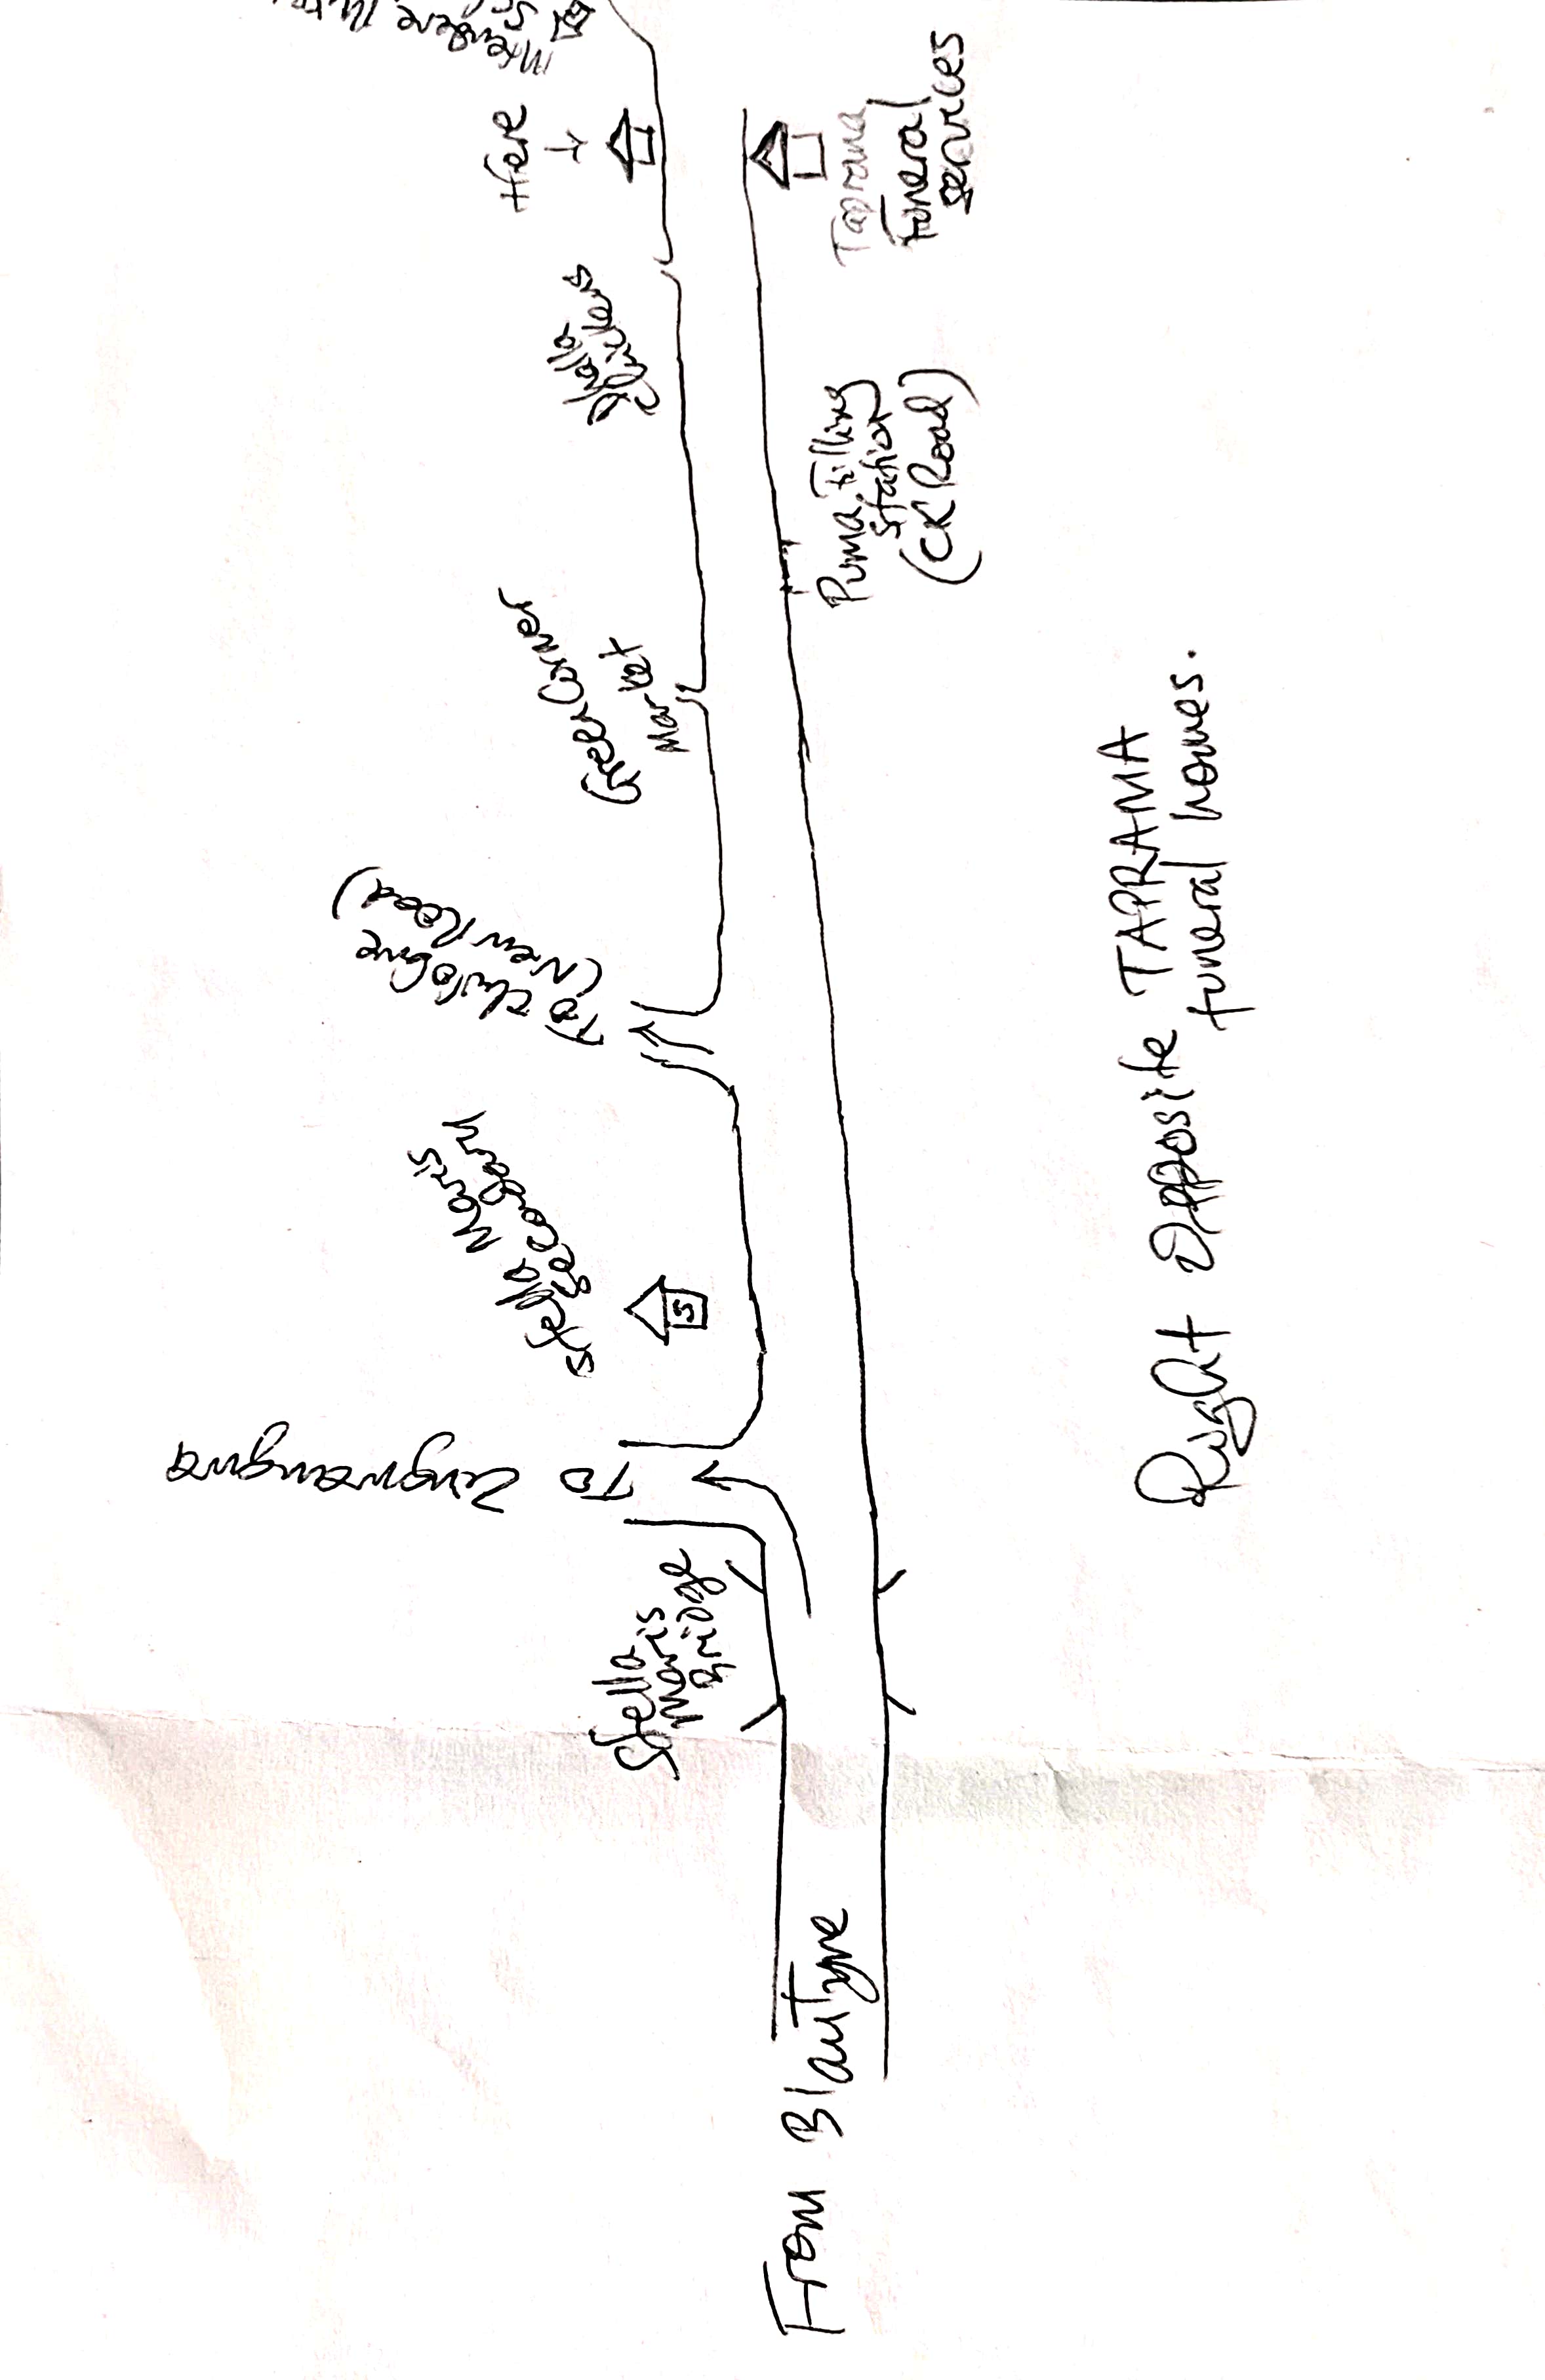 From Blantyre
Stella
maris
Bridge
To Zingwangwa
Stella Maris
Secondary
To chilobwe
(New Road)
Green Corner
Market
Puma Filling
Station
(CK Road)
Here
Taprama
Funeral
Services
Right Opposite TAPRAMA
funeral homes.